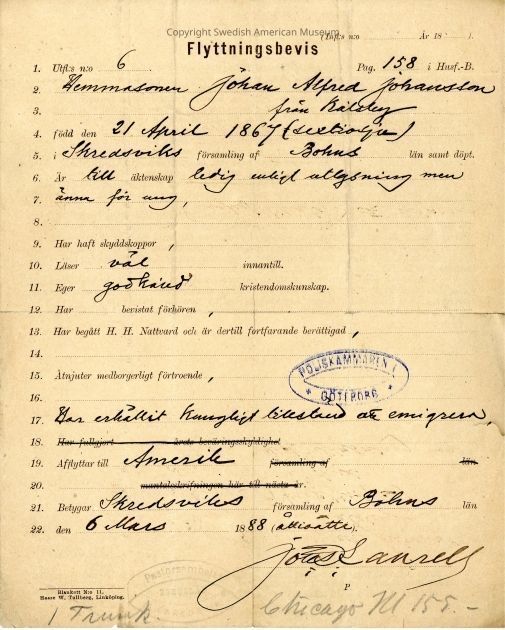 Copyright Swedish American Museum
(Infl.: n:o År 18 ).
Flyttningsbevis
1. Utfl.: n:o 6 Pag. 158 i Husf.-B.
2. Hemmasonen Johan Alfred Johansson
3. från Kälsby
4. född den 21 April 1867 (sextiosju)
5. i Skredsviks församling af Bohus län samt döpt.
6. Är till äktenskap ledig enligt utlysning men
7. änna för ung,
8.
9. Har haft skyddskoppor,
10. Läser väl innantill.
11. Eger godkänd kristendomskunskap.
12. Har bevistat förhören,
13. Har begått H. H. Nattvard och är dertill fortfarande berättigad,
14.
15. Åtnjuter medborgerligt förtroende,
16.
POLISKAMMAREN I
GÖTEBORG
17. Har erhållit Kungligt tillstånd att emigrera,
18. Har fullgjort årets beväringsskyldighet
19. Afflyttar till Amerik församling af län
20. mantalsskrifningen här till nästa år.
21. Betygar Skredsviks församling af Bohus län
22. den 6 Mars 1888 (åttiåtta).
Laurell
P
Blankett N:o 11.
Hasse W. Tullberg, Linköping.
Pastorsembetet
1 Trunk. Chicago Ill 155.-